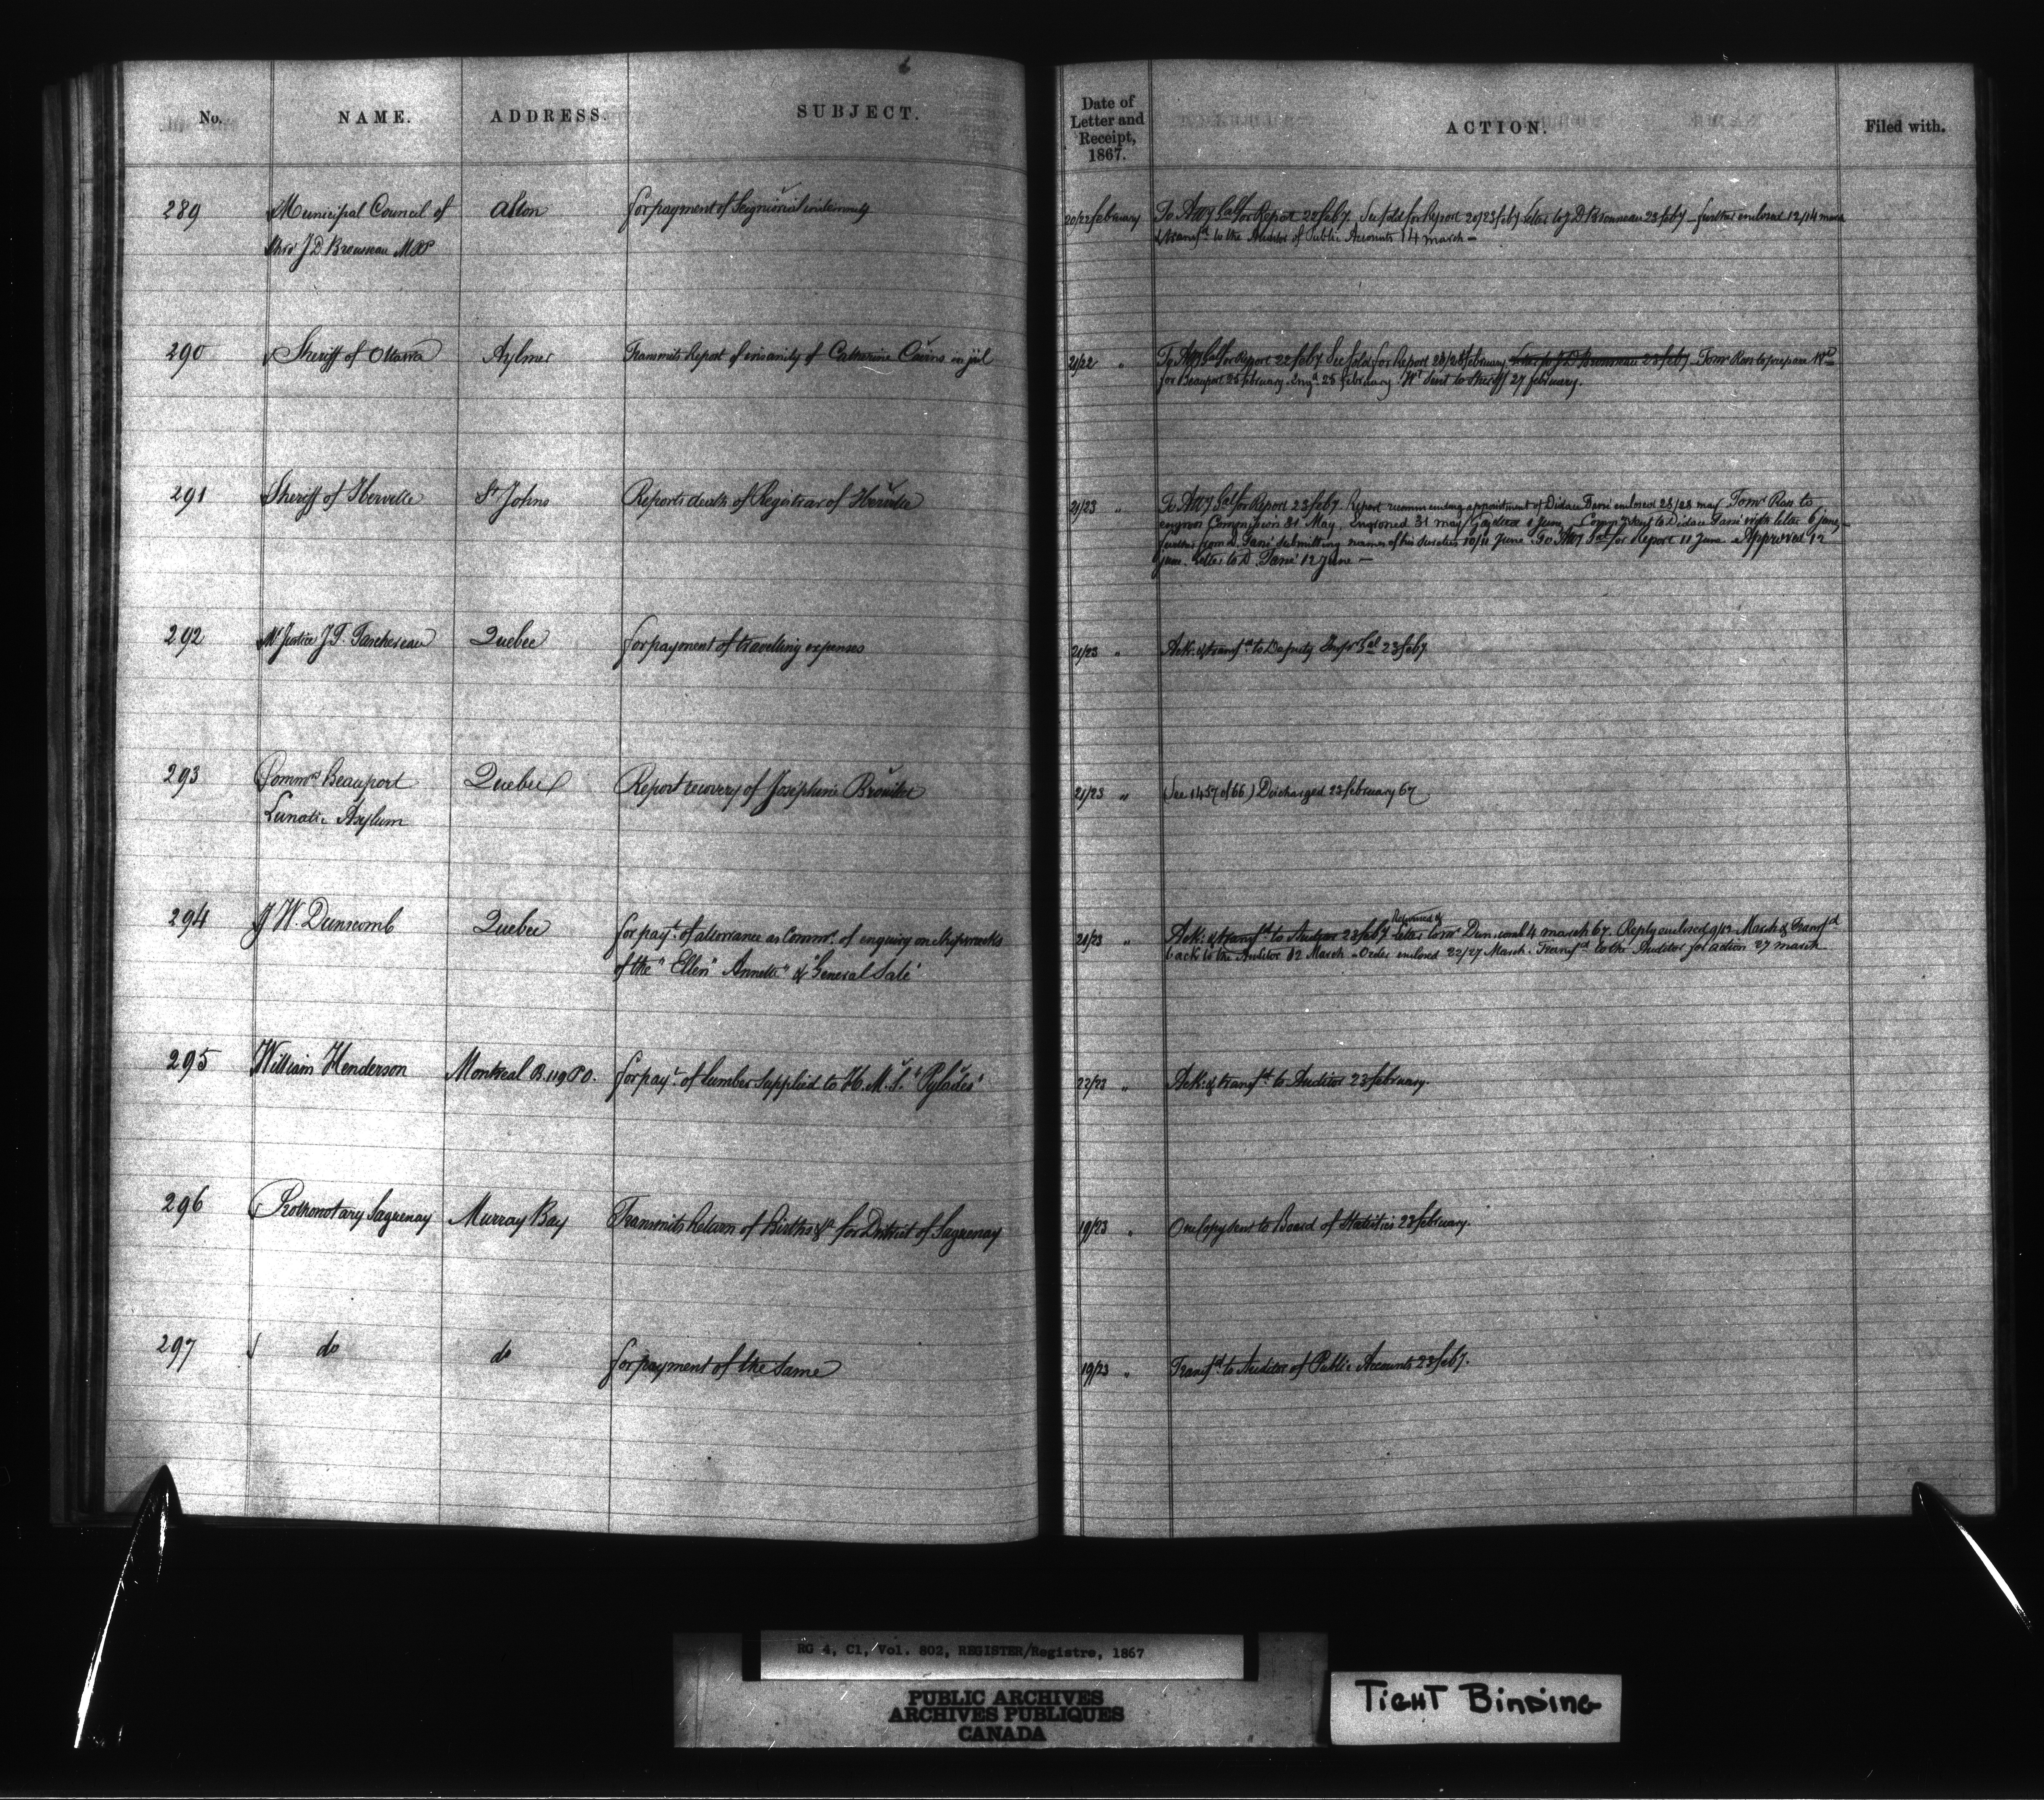 No. NAME. ADDRESS. SUBJECT. Date of Letter and Receipt, 1867. ACTION. Filed with.
289 Municipal Council of Aston for payment of Seigniorial indemnity 20/22 february To Atty Gal for Report 22 feby. See fold for Report 20/23 feby letter to J D Brousseau 23 feby – further enclosed 12/14 march
thro' J D Brousseau MPP & transfd to the Auditor of Public Accounts 14 march –
290 Sheriff of Ottawa Aylmer Transmits Report of insanity of Catherine Cairns in jail 21/22 " To Atty Gal for Report 22 feby See fold for Report 23/25 february. letter to J D Brousseau 23 feby To Mr Ross to prepare Wt
for Beauport 25 february. Engd 25 february. Wt sent to Sheriff 27 february.
291 Sheriff of Iberville St Johns Reports death of Registrar of Iberville 21/23 " To Atty Gal for Report 23 feby. Report recommending appointment of Didace Tassé enclosed 28/28 may To Mr Ross to
engross Commission 31 May, Engrossed 31 may Gazetted 1 June. Commn sent to Didace Tassé with letter 6 june –
further from D. Tassé submitting names of his sureties 10/11 June. To Atty Gal for Report 11 June. Approved 12
june. Letter to D. Tassé 12 June –
292 Mr Justice J. T. Taschereau Quebec for payment of travelling expenses 21/23 " Ack: & transfd to Deputy Inspr Gal 23 feby.
293 Commrs Beauport Quebec Report recovery of Josephine Brouillet 21/23 " (See 1457 of 66) Discharged 23 february 67
Lunatic Asylum
294 J W. Dunscomb Quebec for payt. of allowance as Commr. of enquiry on shipwrecks 21/23 " Ack: & transfd to Auditor 23 feby Returned & letter to Mr Dunscomb 4 march 67. Reply enclosed 9/12 March & Transfd
of the "Ellen" "Annette" & "General Sale" back to the Auditor 12 March – Order enclosed 22/27 March. Transfd to the Auditor for action 27 march
295 William Henderson Montreal B. 119 P O. for payt. of lumber supplied to H. M. S. "Pylades" 22/23 " Ack: & transfd to Auditor 23 february.
296 Prothonotary Saguenay Murray Bay Transmits Return of Births &c for District of Saguenay 19/23 " One Copy sent to Board of Statistics 23 february.
297 do do for payment of the same 19/23 " Transfd to Auditor of Public Accounts 23 feby.
RG 4, C1, Vol. 802, REGISTER/Registre, 1867
PUBLIC ARCHIVES
ARCHIVES PUBLIQUES
CANADA
TIGHT BINDING